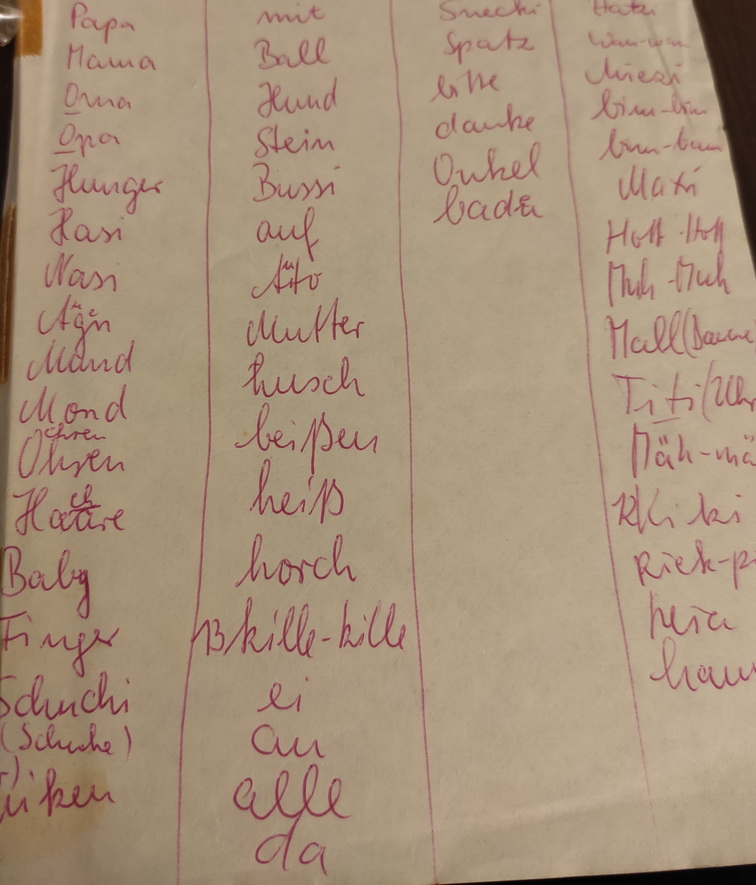 Papa
Mama
Oma
Opa
Hunger
Hasi
Nasi
Mund
Mond
Ohren
Baby
Finger
Schuchi
(Schuhe)
mit
Ball
Hund
Stein
Bussi
auf
Auto
Mutter
husch
beißen
heiß
horch
kille-kille
ei
an
alle
da
Spatz
bitte
danke
Onkel
bada
Hatzi
wau-wau
Miezi
bim-bim
bum-bum
Hott-Hott
Muh-Muh
Mäh-mä
Ki ki
heia